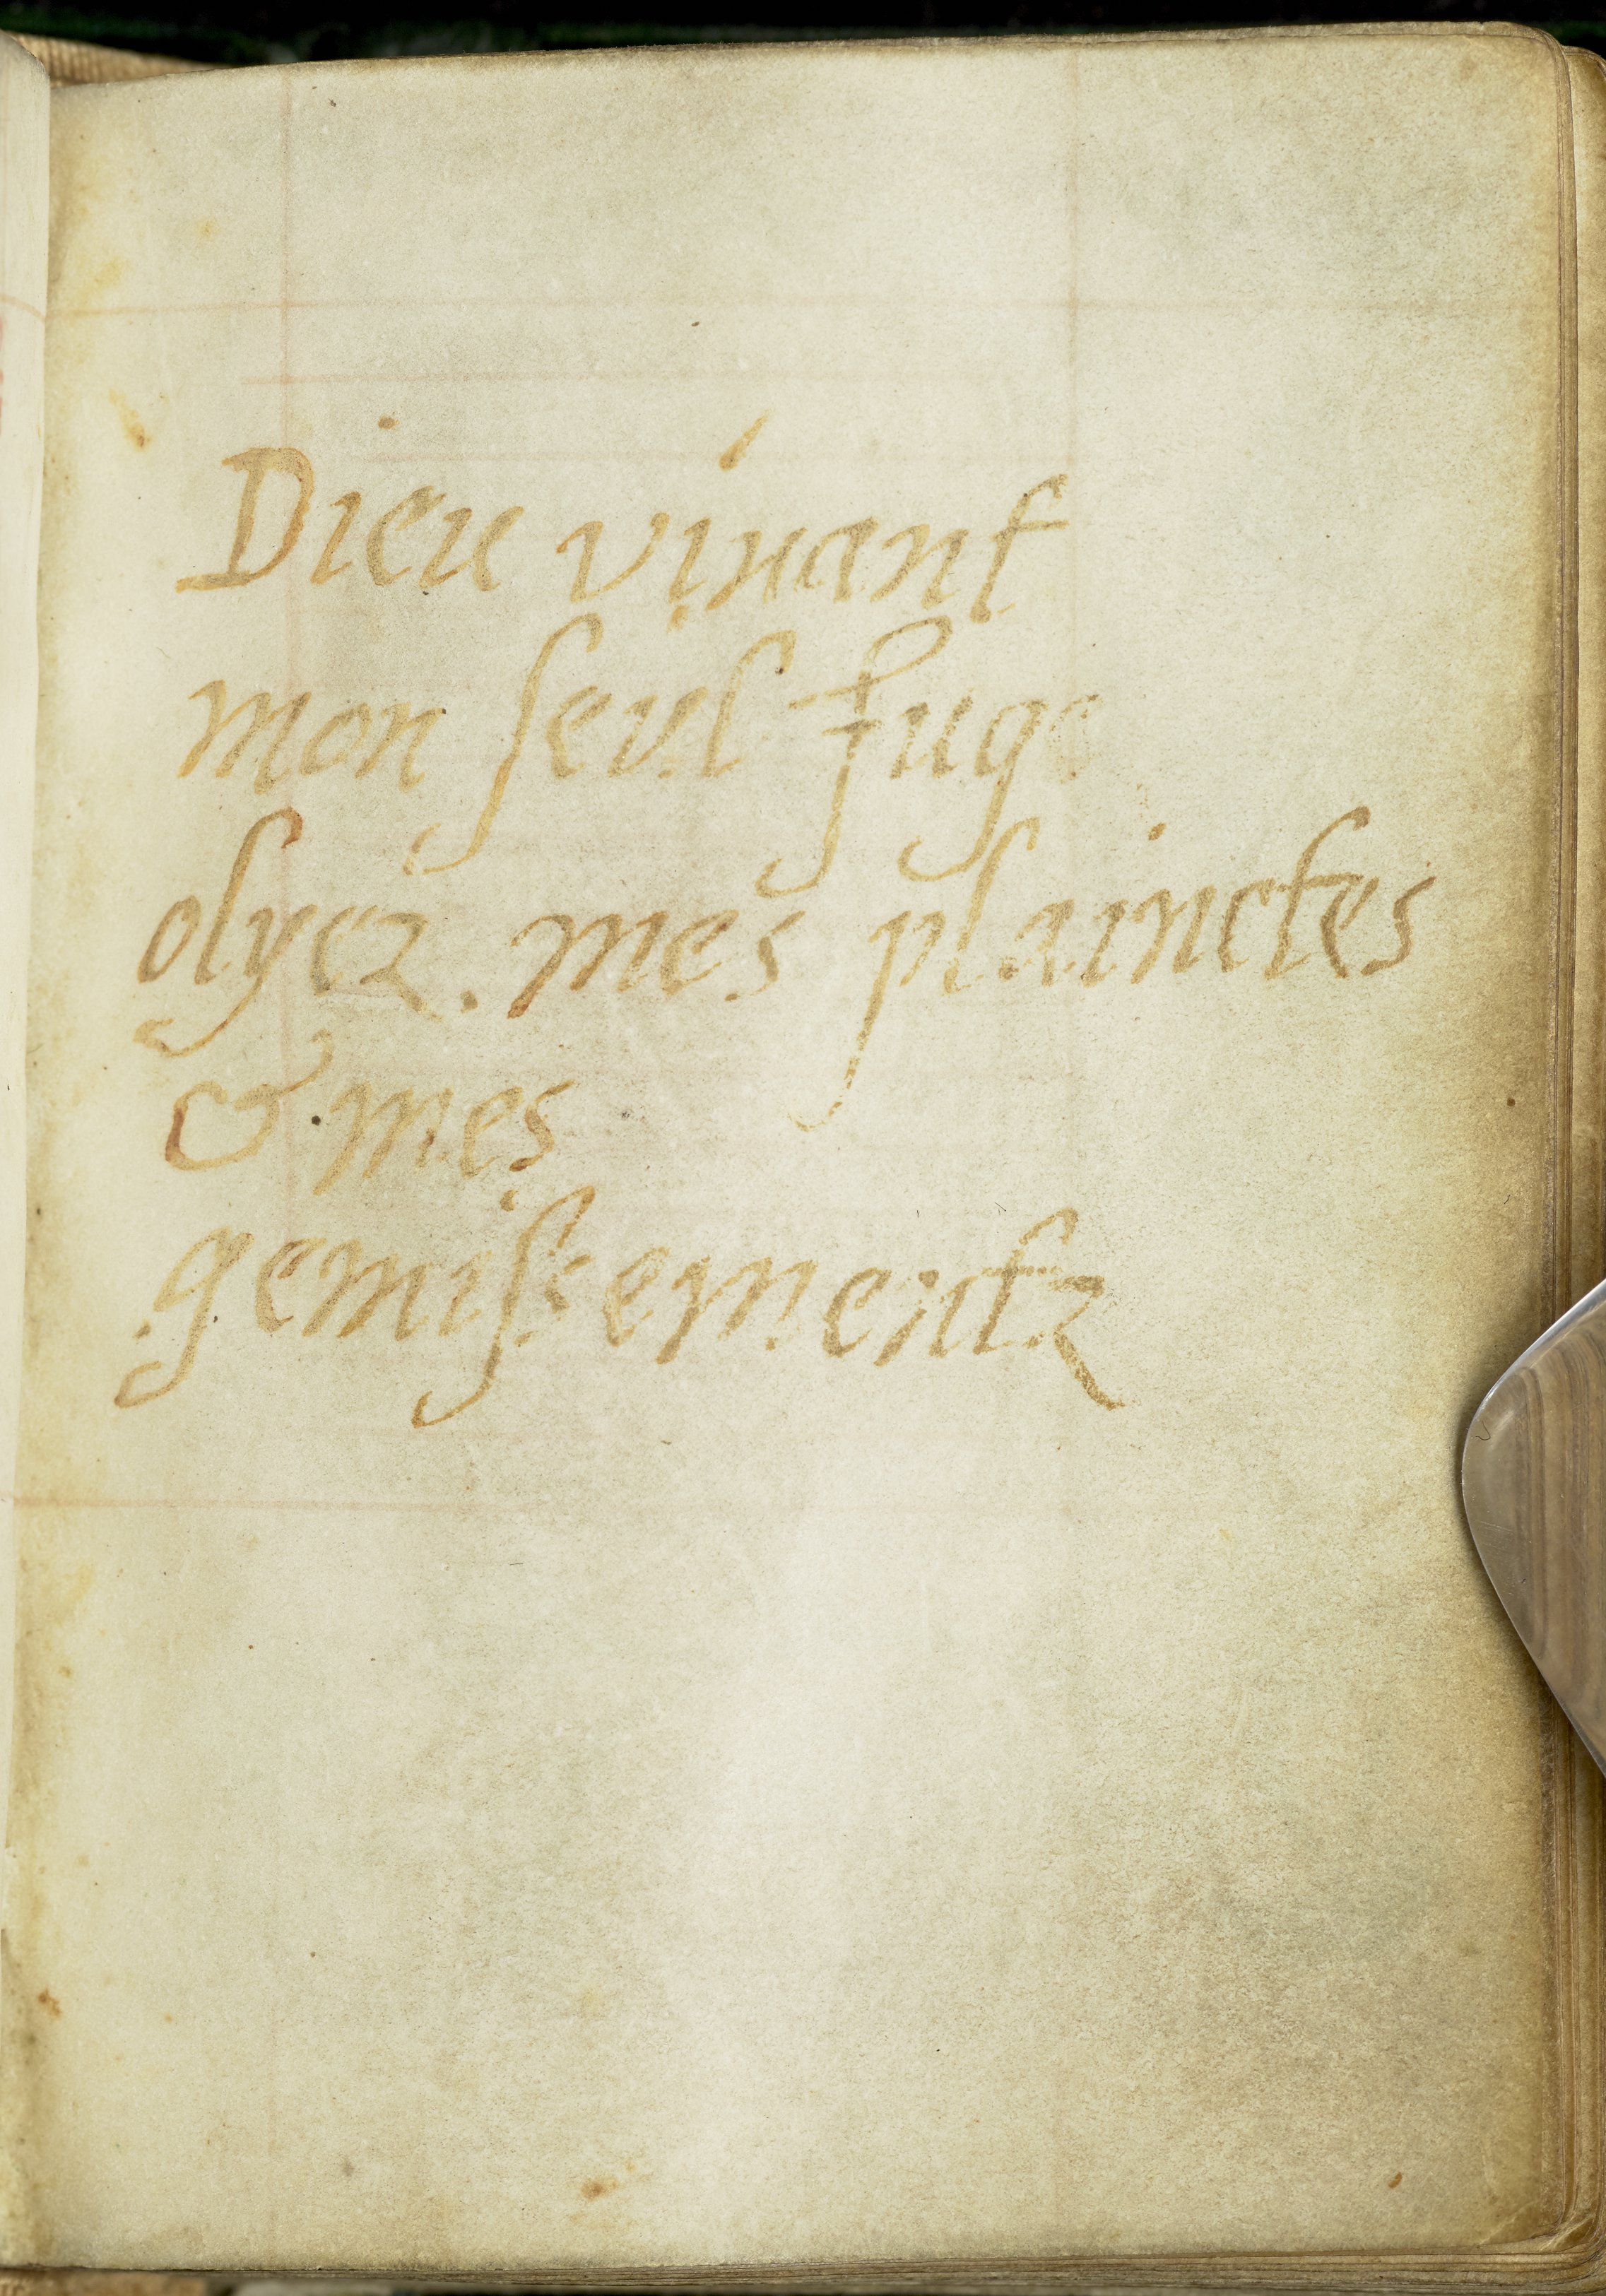 Dieu viuant
mon ſeul Juge
olyez. mes plainctes
& mes
gemiſsementz